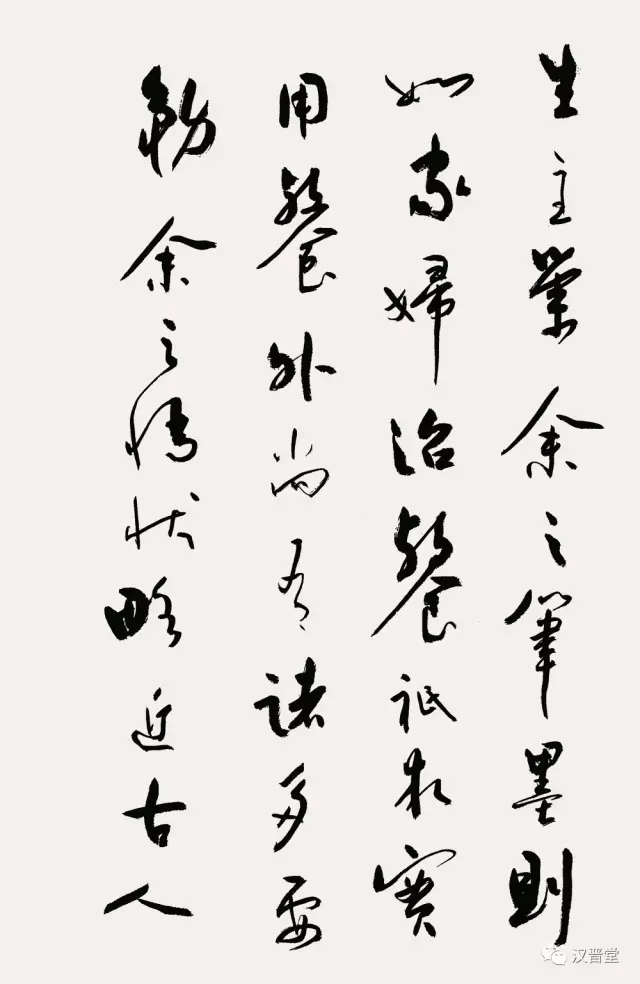 生主業余之筆墨則
如家婦治餐祇求實
用餐外尚有諸多要
務余之情状略近古人
汉晋堂